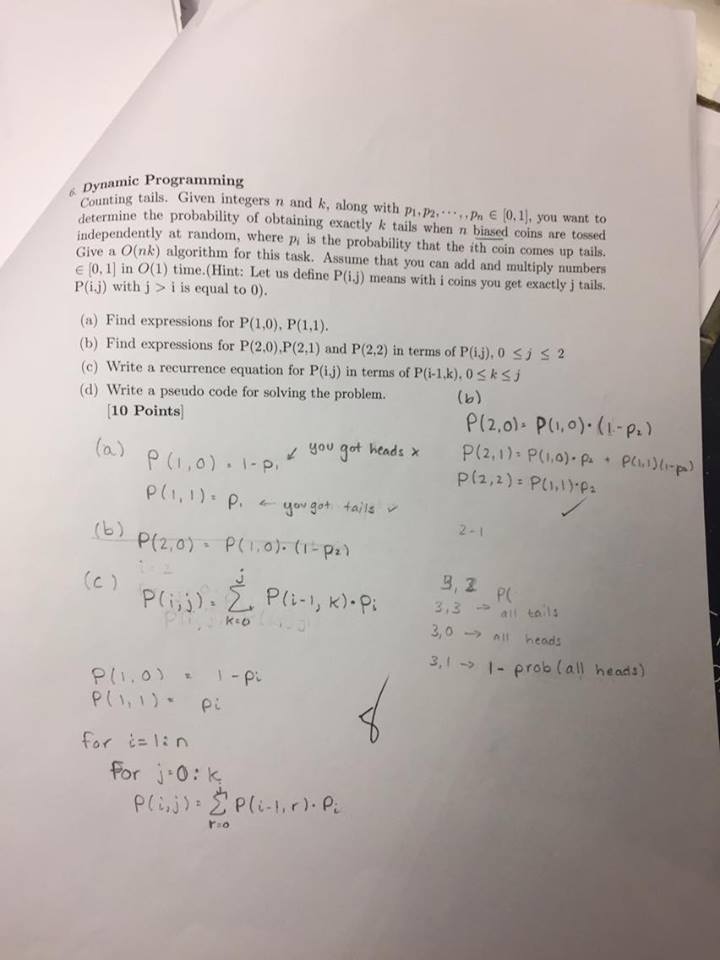 6. Dynamic Programming
Counting tails. Given integers n and k, along with p₁,p₂,⋯,,pₙ ∈ [0,1], you want to
determine the probability of obtaining exactly k tails when n biased coins are tossed
independently at random, where pᵢ is the probability that the ith coin comes up tails.
Give a O(nk) algorithm for this task. Assume that you can add and multiply numbers
∈ [0,1] in O(1) time.(Hint: Let us define P(i,j) means with i coins you get exactly j tails.
P(i,j) with j > i is equal to 0).
(a) Find expressions for P(1,0), P(1,1).
(b) Find expressions for P(2,0),P(2,1) and P(2,2) in terms of P(i,j), 0 ≤ j ≤ 2
(c) Write a recurrence equation for P(i,j) in terms of P(i-1,k), 0 ≤ k ≤ j
(d) Write a pseudo code for solving the problem.
[10 Points]
(a) P(1,0) = 1-p₁ ↙ you got heads x
P(1,1) = p₁ ← you got tails ✓
(b)
P(2,0) = P(1,0)·(1-p₂)
P(2,1) = P(1,0)·p₂ + P(1,1)(1-p₂)
P(2,2) = P(1,1)·p₂
✓
(b) P(2,0) = P(1,0)·(1-p₂)
2-1
(c) P(i,j) = Σ_{k=0}^{j} P(i-1, k)·pᵢ
3, 2 P(
3,3 → all tails
3,0 → all heads
3,1 → 1- prob(all heads)
P(1,0) = 1-pᵢ
P(1,1) = pᵢ
8
for i=1:n
for j=0:k
P(i,j) = Σ_{r=0}^{j} P(i-1,r)·pᵢ